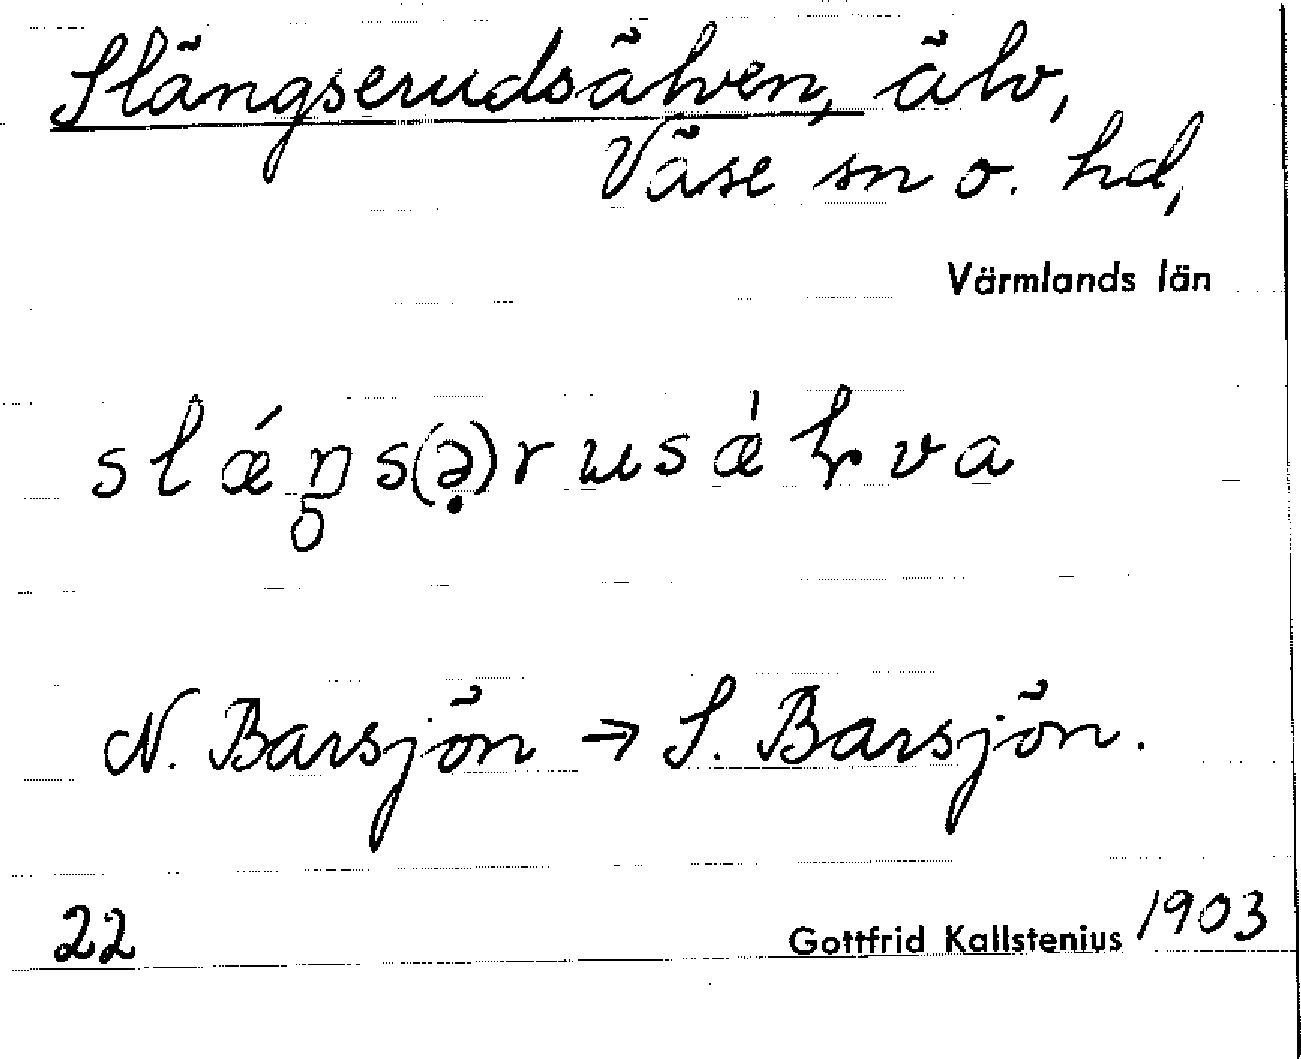 Slängserudsälven, älv,
Väse sn o. hd,
Värmlands län
slǽŋs(ə̣)rusæ̍ɽva
N. Barsjön → S. Barsjön.
22
Gottfrid Kallstenius 1903